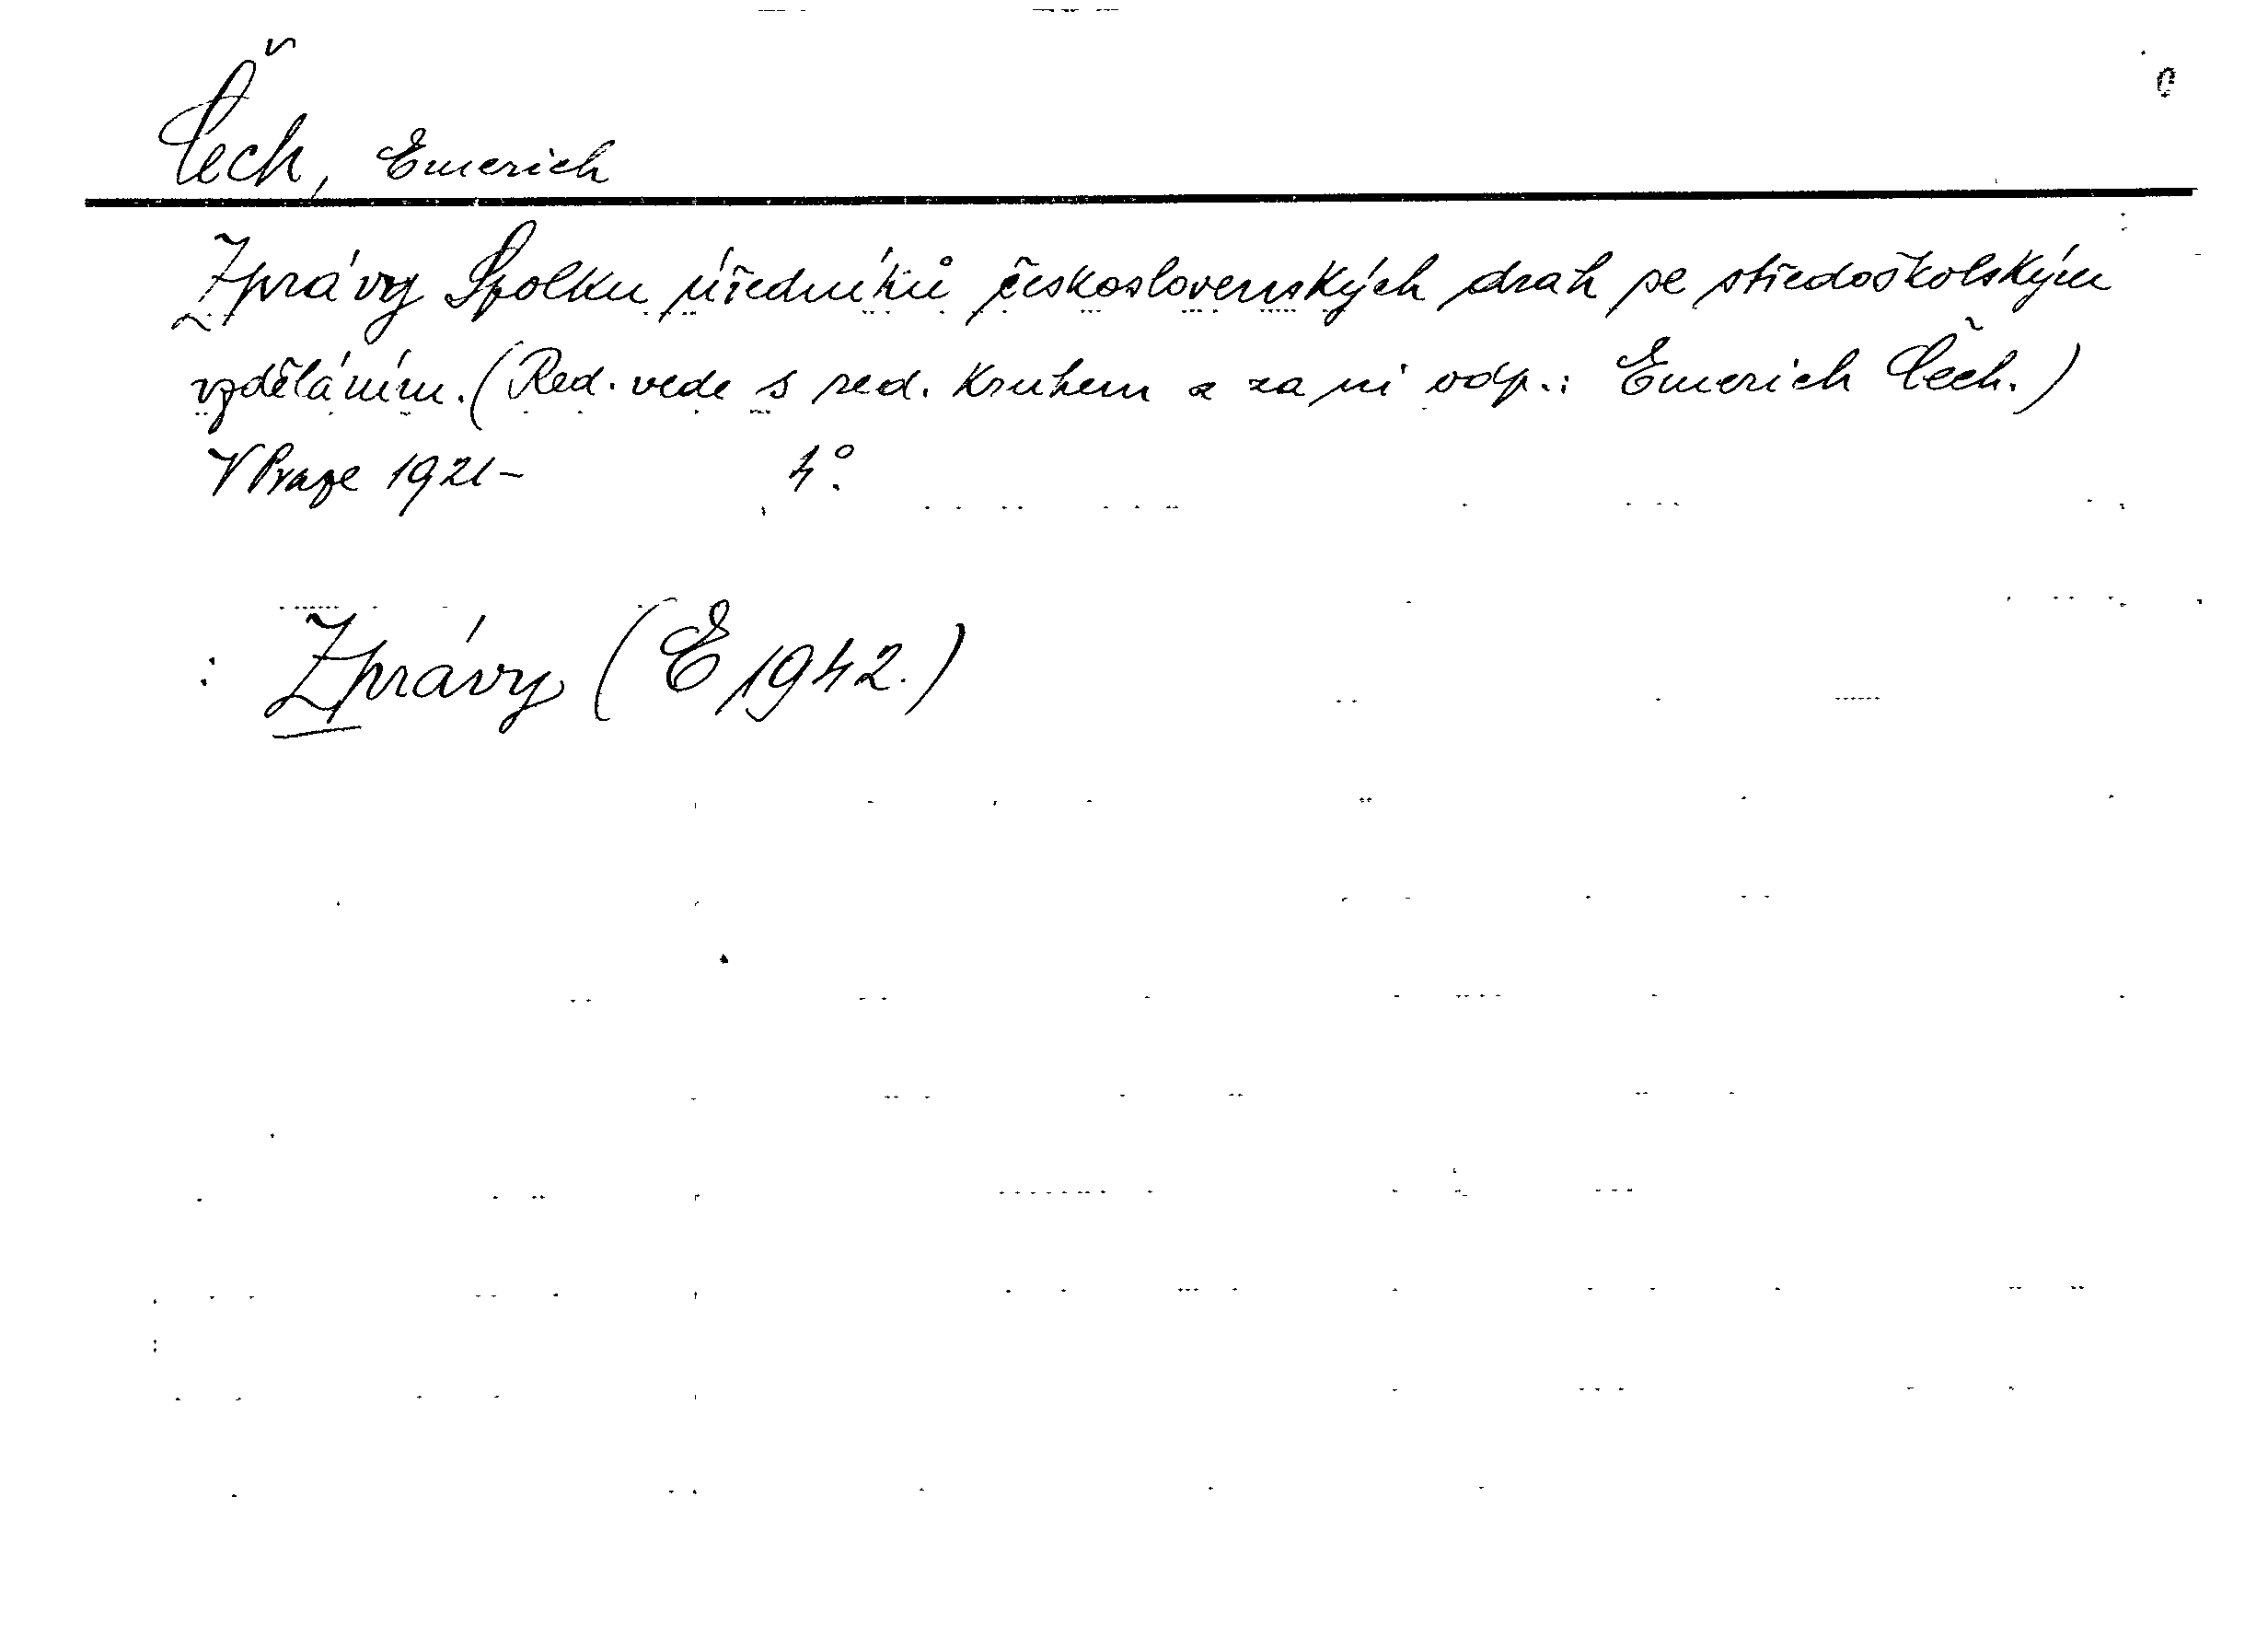 Čech, Emerich
Zprávy Spolku úředníků československých drah se středoškolským
vzděláním. (Red. vede s red. kruhem a za ni odp.: Emerich Čech.)
V Praze 1921- 4°.
: Zprávy (E 1942.)